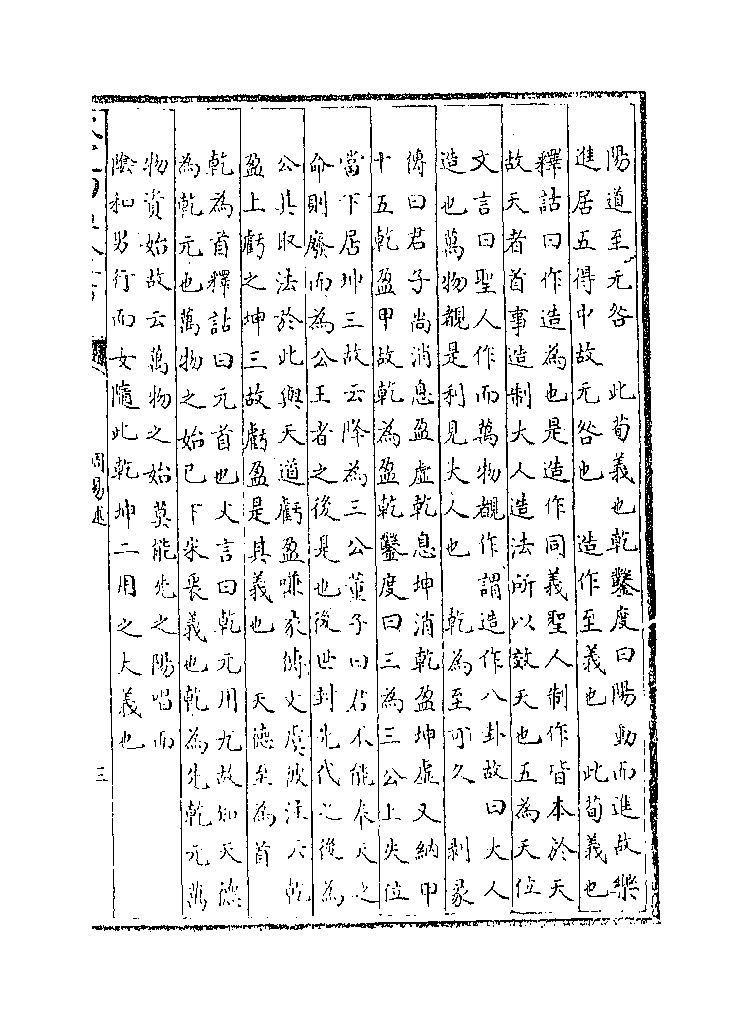 陽道至无咎　此荀義也乾鑿度曰陽動而進故樂
進居五得中故无咎也　造作至義也　此荀義也
釋詁曰作造為也是造作同義聖人制作皆本於天
故天者首事造制大人造法所以效天也五為天位
文言曰聖人作而萬物覩作謂造作八卦故曰大人
造也萬物覩是利見大人也　乾為至可久　剥彖
傳曰君子尚消息盈虛乾息坤消乾盈坤虛又納甲
十五乾盈甲故乾為盈乾鑿度曰三為三公上失位
當下居坤三故云降為三公董子曰君不能奉天之
命則廢而為公王者之後是也後世封先代之後為
公其取法於此與天道虧盈嗛彖傳文虞彼注云乾
盈上虧之坤三故虧盈是其義也　天德至為首
乾為首釋詁曰元首也文言曰乾元用九故知天德
為乾元也萬物之始已下宋衷義也乾為先乾元萬
物資始故云萬物之始莫能先之陽唱而
陰和男行而女隨此乾坤二用之大義也
周易述
三